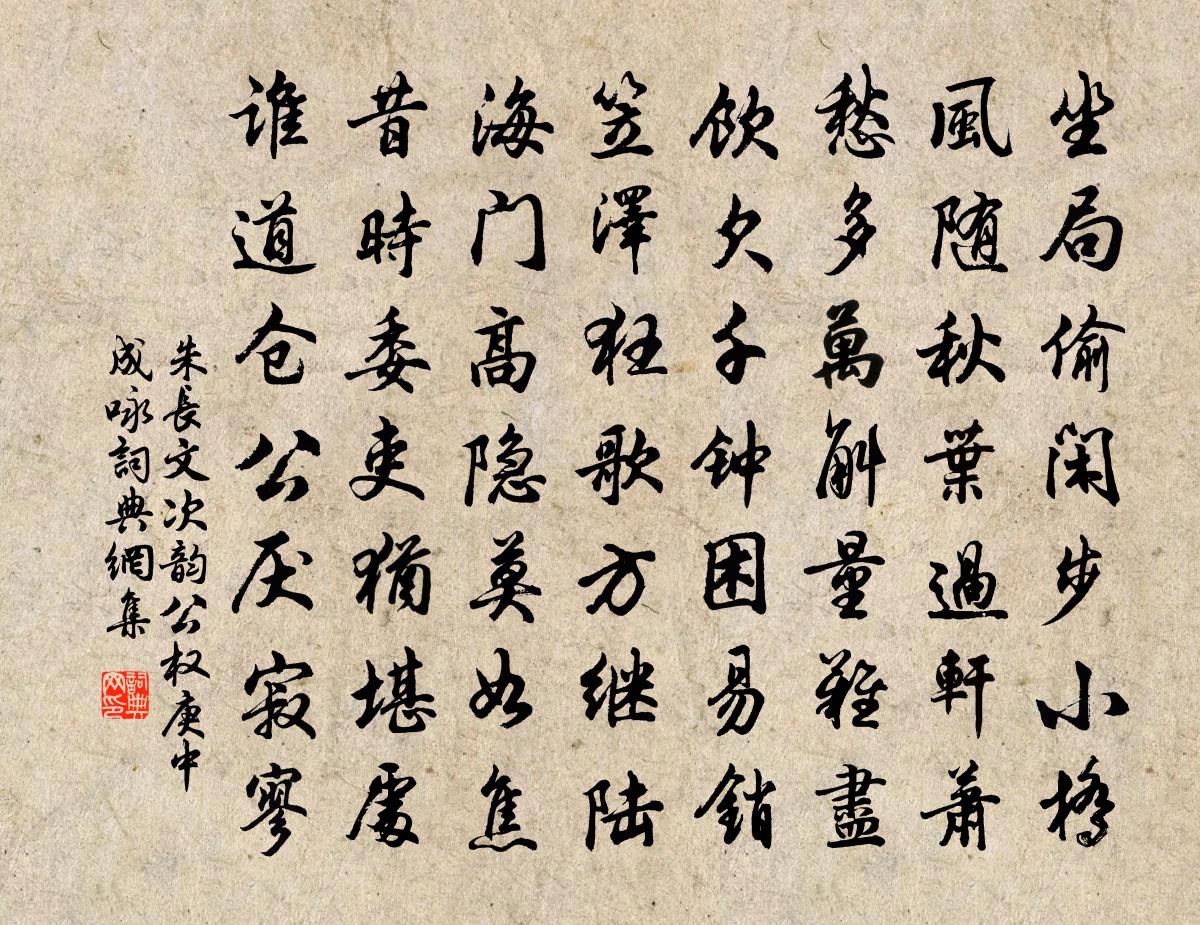 坐局偷閑步小橋
風随秋葉過軒蕭
愁多萬斛量難盡
飲欠千钟困易銷
笠澤狂歌方继陆
海门高隐莫如焦
昔時委吏猶堪處
谁道仓公厌寂寥
朱長文次韵公权庚中
成咏詞典網集
詞典网印